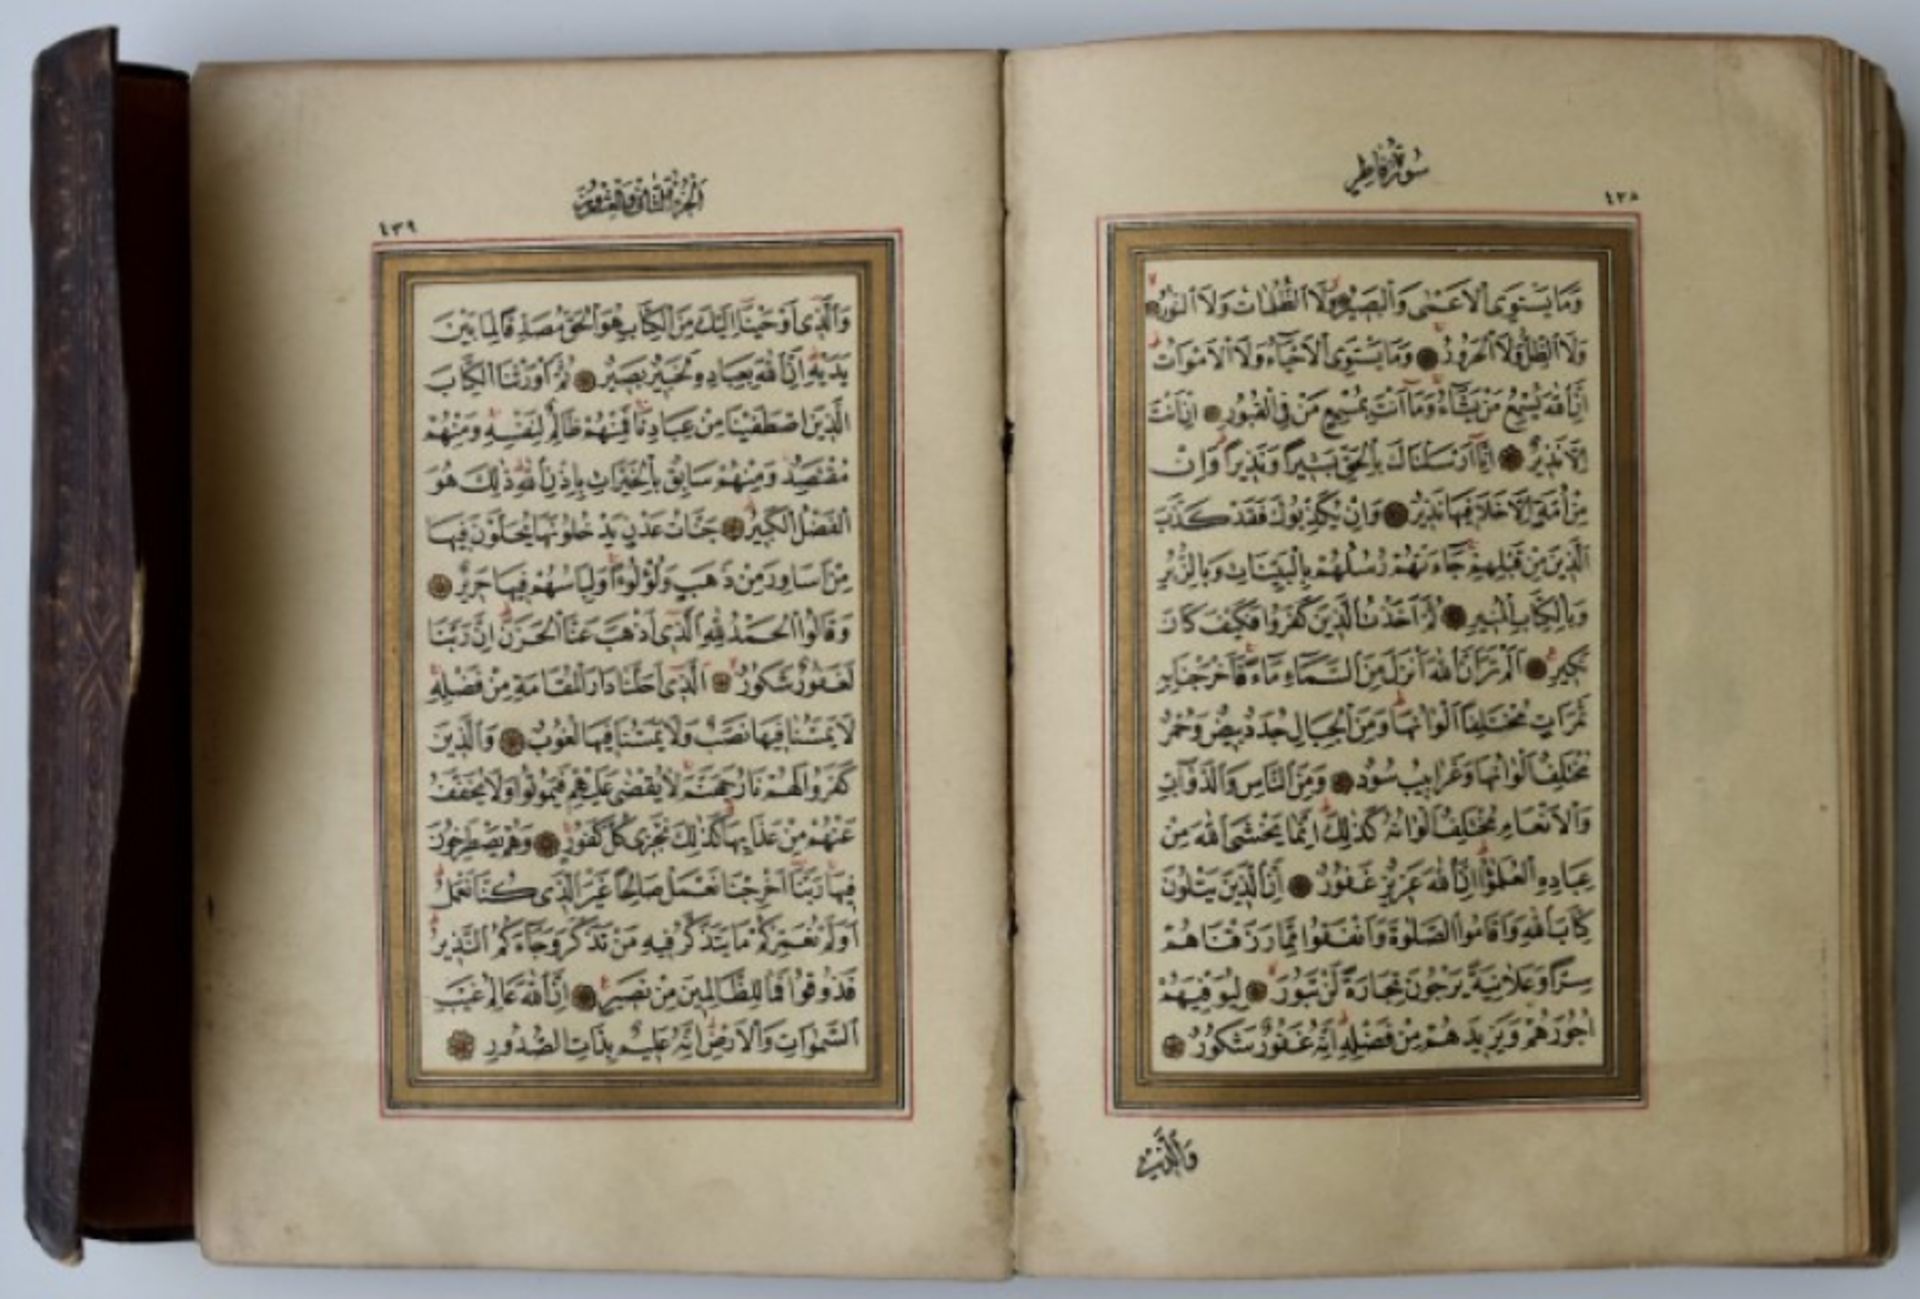 سورة فاطر
٤٣٨
وَمَا يَسْتَوِى الْاَعْمٰى وَالْبَصِيرُ وَلَا الظُّلُمَاتُ وَلَا النُّورُ
وَلَا الظِّلُّ وَلَا الْحَرُورُ وَمَا يَسْتَوِى الْاَحْيَاءُ وَلَا الْاَمْوَاتُ
اِنَّ اللهَ يُسْمِعُ مَنْ يَشَاءُ وَمَا اَنْتَ بِمُسْمِعٍ مَنْ فِى الْقُبُورِ اِنْ اَنْتَ
اِلَّا نَذِيرٌ اِنَّا اَرْسَلْنَاكَ بِالْحَقِّ بَشِيرًا وَنَذِيرًا وَاِنْ
مِنْ اُمَّةٍ اِلَّا خَلَا فِيهَا نَذِيرٌ وَاِنْ يُكَذِّبُوكَ فَقَدْ كَذَّبَ
الَّذِينَ مِنْ قَبْلِهِمْ جَاءَتْهُمْ رُسُلُهُمْ بِالْبَيِّنَاتِ وَبِالزُّبُرِ
وَبِالْكِتَابِ الْمُنِيرِ ثُمَّ اَخَذْتُ الَّذِينَ كَفَرُوا فَكَيْفَ كَانَ
نَكِيرِ اَلَمْ تَرَ اَنَّ اللهَ اَنْزَلَ مِنَ السَّمَاءِ مَاءً فَاَخْرَجْنَا بِهِ
ثَمَرَاتٍ مُخْتَلِفًا اَلْوَانُهَا وَمِنَ الْجِبَالِ جُدَدٌ بِيضٌ وَحُمْرٌ
مُخْتَلِفٌ اَلْوَانُهَا وَغَرَابِيبُ سُودٌ وَمِنَ النَّاسِ وَالدَّوَابِّ
وَالْاَنْعَامِ مُخْتَلِفٌ اَلْوَانُهُ كَذٰلِكَ اِنَّمَا يَخْشَى اللهَ مِنْ
عِبَادِهِ الْعُلَمٰؤُا اِنَّ اللهَ عَزِيزٌ غَفُورٌ اِنَّ الَّذِينَ يَتْلُونَ
كِتَابَ اللهِ وَاَقَامُوا الصَّلٰوةَ وَاَنْفَقُوا مِمَّا رَزَقْنَاهُمْ
سِرًّا وَعَلَانِيَةً يَرْجُونَ تِجَارَةً لَنْ تَبُورَ لِيُوَفِّيَهُمْ
اُجُورَهُمْ وَيَزِيدَهُمْ مِنْ فَضْلِهِ اِنَّهُ غَفُورٌ شَكُورٌ
وَالَّذِى
اَلْجُزْءُ الثَّانِى وَالْعِشْرُونَ
٤٣٩
وَالَّذِى اَوْحَيْنَا اِلَيْكَ مِنَ الْكِتَابِ هُوَ الْحَقُّ مُصَدِّقًا لِمَا بَيْنَ
يَدَيْهِ اِنَّ اللهَ بِعِبَادِهِ لَخَبِيرٌ بَصِيرٌ ثُمَّ اَوْرَثْنَا الْكِتَابَ
الَّذِينَ اصْطَفَيْنَا مِنْ عِبَادِنَا فَمِنْهُمْ ظَالِمٌ لِنَفْسِهِ وَمِنْهُمْ
مُقْتَصِدٌ وَمِنْهُمْ سَابِقٌ بِالْخَيْرَاتِ بِاِذْنِ اللهِ ذٰلِكَ هُوَ
الْفَضْلُ الْكَبِيرُ جَنَّاتُ عَدْنٍ يَدْخُلُونَهَا يُحَلَّوْنَ فِيهَا
مِنْ اَسَاوِرَ مِنْ ذَهَبٍ وَلُؤْلُؤًا وَلِبَاسُهُمْ فِيهَا حَرِيرٌ
وَقَالُوا الْحَمْدُ لِلهِ الَّذِى اَذْهَبَ عَنَّا الْحَزَنَ اِنَّ رَبَّنَا
لَغَفُورٌ شَكُورٌ اَلَّذِى اَحَلَّنَا دَارَ الْمُقَامَةِ مِنْ فَضْلِهِ
لَا يَمَسُّنَا فِيهَا نَصَبٌ وَلَا يَمَسُّنَا فِيهَا لُغُوبٌ وَالَّذِينَ
كَفَرُوا لَهُمْ نَارُ جَهَنَّمَ لَا يُقْضٰى عَلَيْهِمْ فَيَمُوتُوا وَلَا يُخَفَّفُ
عَنْهُمْ مِنْ عَذَابِهَا كَذٰلِكَ نَجْزِى كُلَّ كَفُورٍ وَهُمْ يَصْطَرِخُونَ
فِيهَا رَبَّنَا اَخْرِجْنَا نَعْمَلْ صَالِحًا غَيْرَ الَّذِى كُنَّا نَعْمَلُ
اَوَلَمْ نُعَمِّرْكُمْ مَا يَتَذَكَّرُ فِيهِ مَنْ تَذَكَّرَ وَجَاءَكُمُ النَّذِيرُ
فَذُوقُوا فَمَا لِلظَّالِمِينَ مِنْ نَصِيرٍ اِنَّ اللهَ عَالِمُ غَيْبِ
السَّمٰوَاتِ وَالْاَرْضِ اِنَّهُ عَلِيمٌ بِذَاتِ الصُّدُورِ